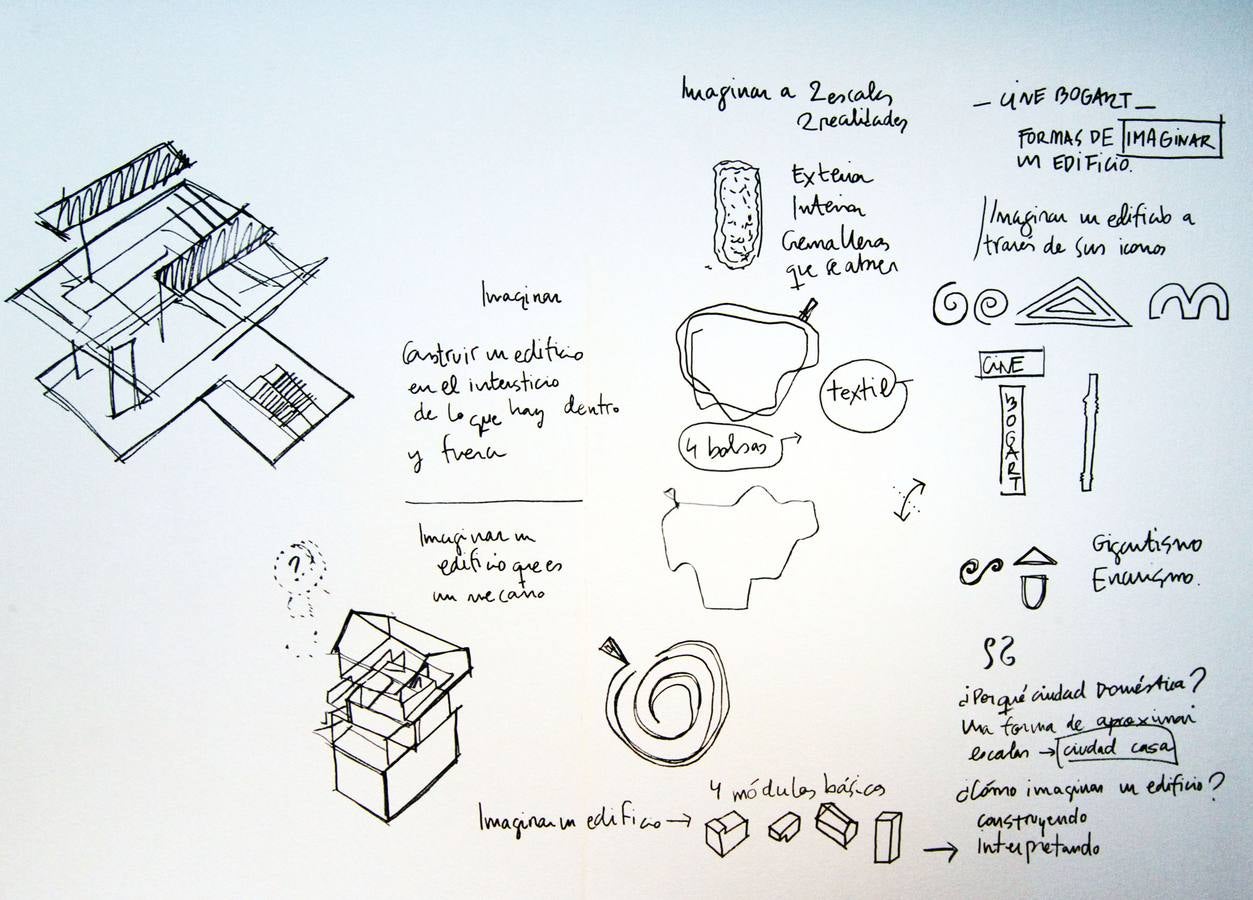 Imaginar a 2 escalas
2 realidades
Exterior
Interior
Cremalleras
que se abren
textil
4 bolsas
— CINE BOGART —
FORMAS DE IMAGINAR
un EDIFICIO.
Imaginar un edificio a
través de sus iconos
CINE
BOGART
Gigantismo
Enanismo.
¿Por qué ciudad Doméstica?
Una forma de aproximar
escalas → ciudad casa
¿Cómo imaginar un edificio?
construyendo
Interpretando
Imaginar
Construir un edificio
en el intersticio
de lo que hay dentro
y fuera
Imaginar un
edificio que es
un mecano
?
4 módulos básicos
Imaginar un edificio →